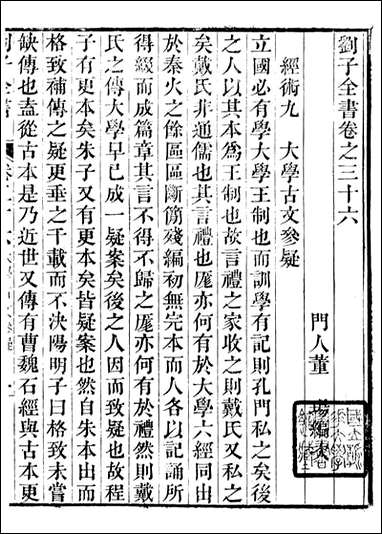 劉子全書卷之三十六
門人董瑒編次
經術九　大學古文參疑
立國必有學大學王制也而訓學有記則孔門私之矣後
之人以其本爲王制也故言禮之家收之則戴氏又私之
矣戴氏非通儒也其言禮也厖亦何有於大學六經同出
於秦火之餘區區斷簡殘編初無完本而人各以記誦所
得綴而成篇章其言不得不歸之厖亦何有於禮然則戴
氏之傳大學早已成一疑案矣後之人因而致疑也故程
子有更本矣朱子又有更本矣皆疑案也然自朱本出而
格致補傳之疑更垂之千載而不決陽明子曰格致未嘗
缺傳也盍從古本是乃近世又傳有曹魏石經與古本更